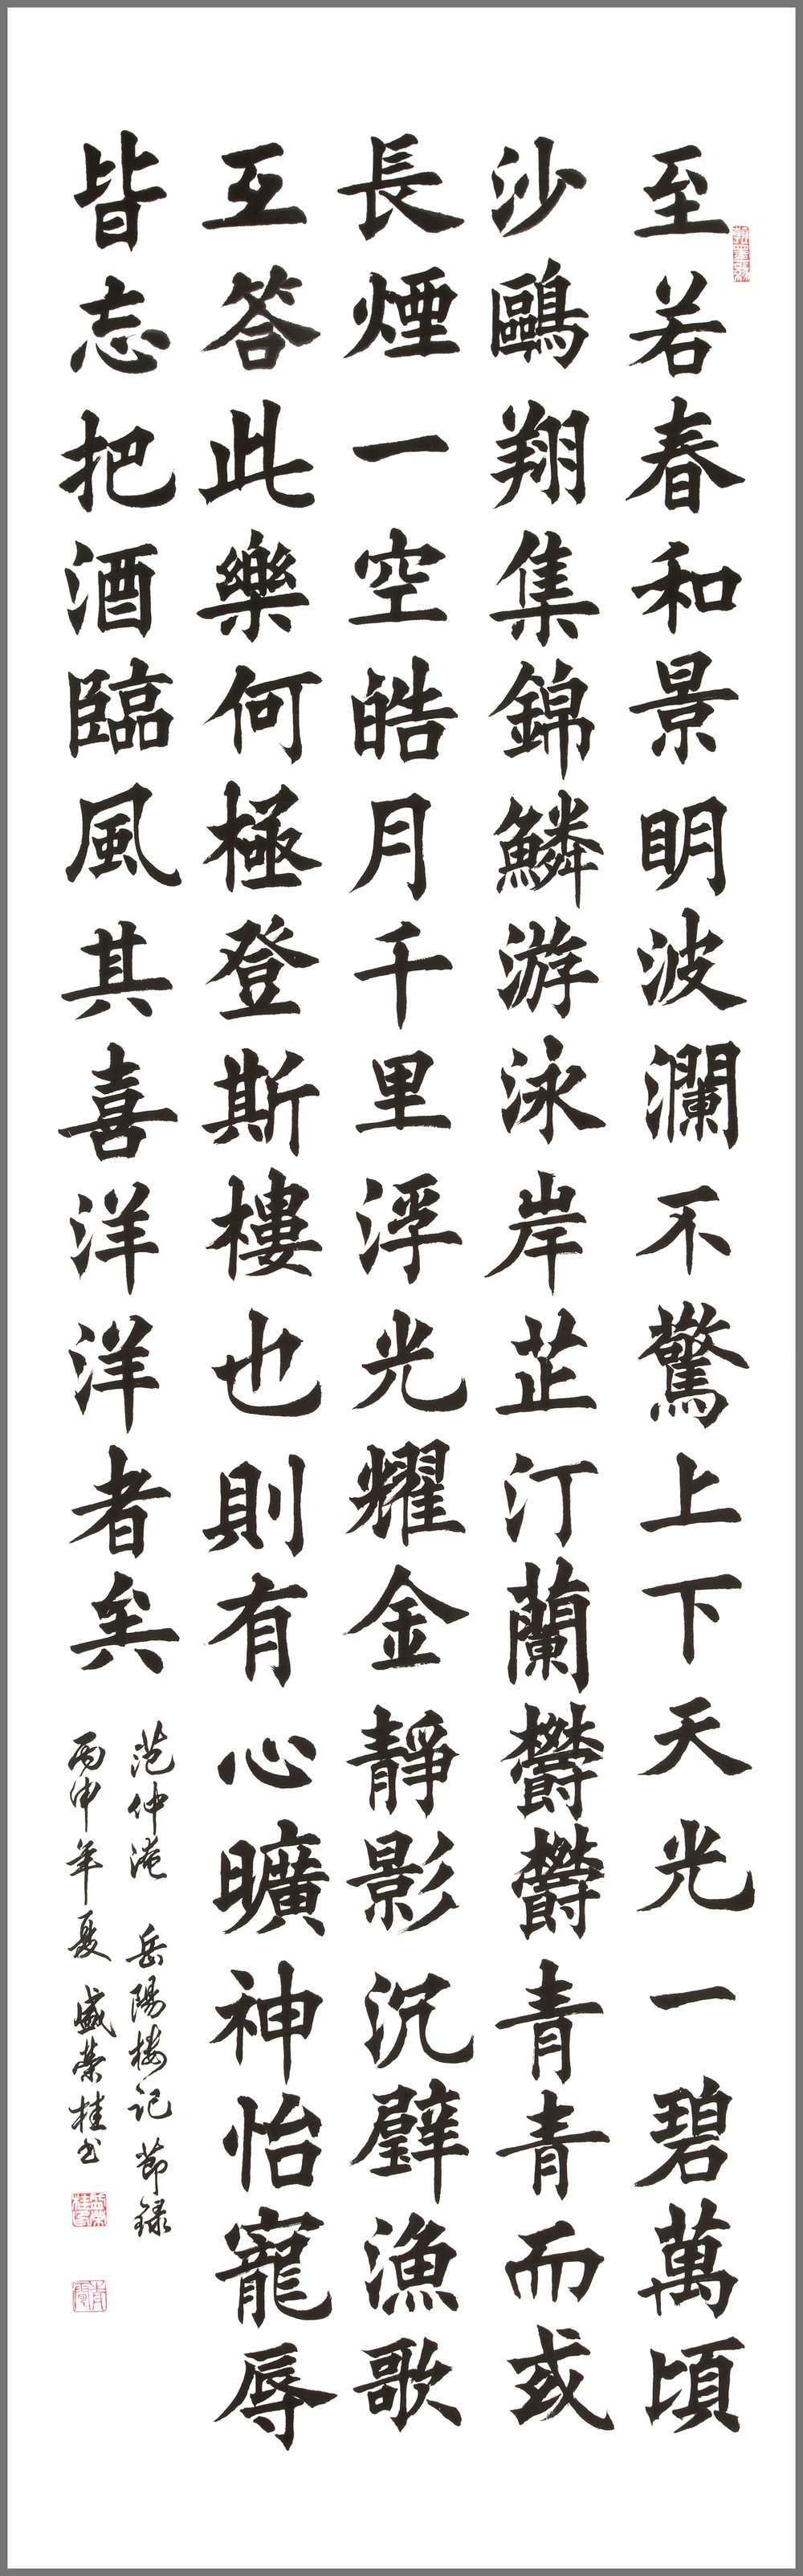 至若春和景明波瀾不驚上下天光一碧萬頃
沙鷗翔集錦鱗游泳岸芷汀蘭欝欝青青而或
長煙一空皓月千里浮光耀金靜影沉璧漁歌
互答此樂何極登斯樓也則有心曠神怡寵辱
皆忘把酒臨風其喜洋洋者矣
范仲淹 岳陽楼記 節録
丙申年夏 盛榮桂书